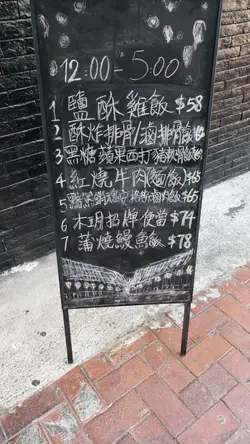 12:00-5:00
1 鹽酥雞飯 $58
2 酥炸排骨/滷排骨飯
3 黑糖蘋果西打豬軟骨飯
4 紅燒牛肉(麵/飯) $65
5 滷肉飯 $65
6 木玥招牌便當 $74
7 蒲燒鰻魚飯 $78